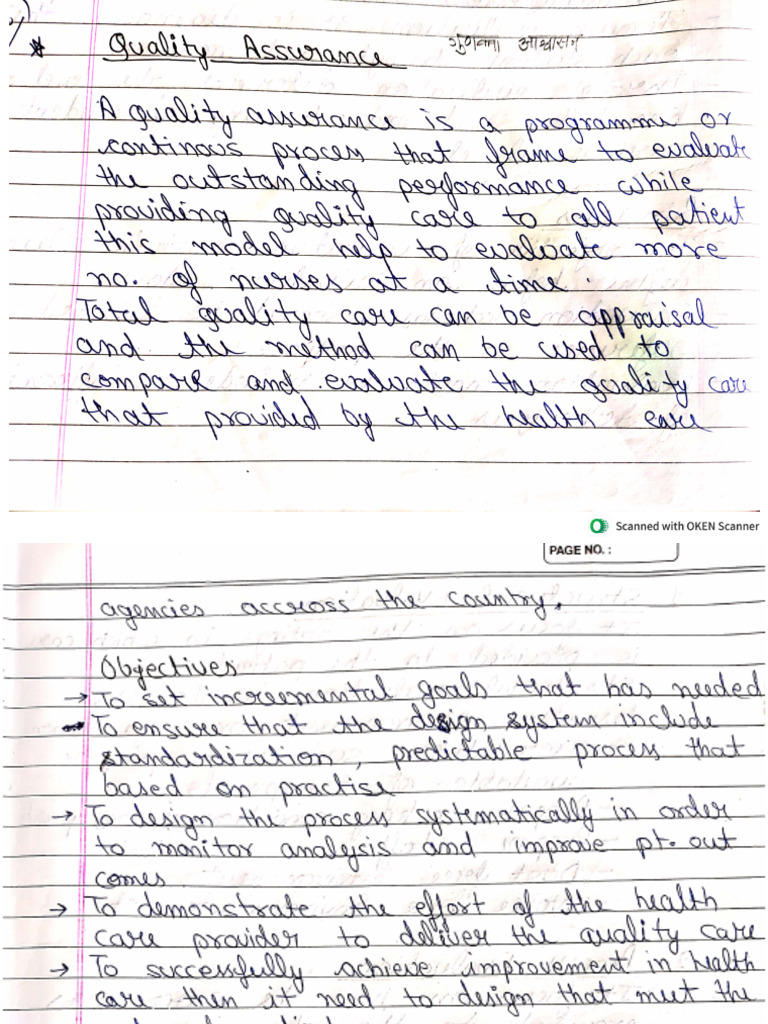 * Quality Assurance गुणवत्ता आश्वासन
A quality assurance is a programme or
continous process that frame to evaluate
the outstanding performance while
providing quality care to all patient
this model help to evaluate more
no. of nurses at a time.
Total quality care can be appraisal
and the method can be used to
compare and evaluate the quality care
that provided by the health care
Scanned with OKEN Scanner
PAGE NO. :
agencies accross the country.
Objectives
→ To set increemental goals that has needed
→ To ensure that the design system include
standardization, predictable process that
based on practise
→ To design the process systematically in order
to monitor analysis and improve pt. out
comes.
→ To demonstrate the effort of the health
care provider to deliver the quality care
→ To successfully achieve improvement in health
care then it need to design that meet the